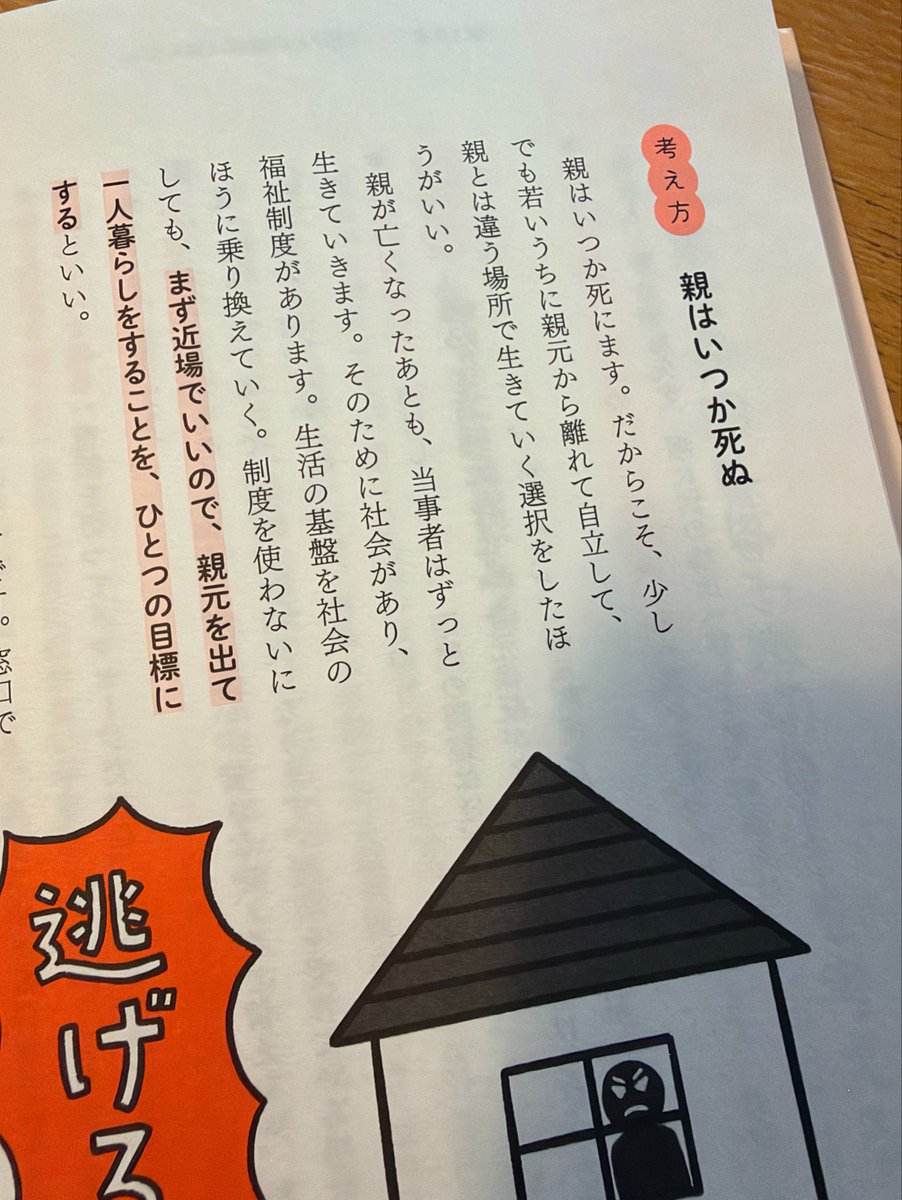 考え方
親はいつか死ぬ
親はいつか死にます。だからこそ、少し
でも若いうちに親元から離れて自立して、
親とは違う場所で生きていく選択をしたほ
うがいい。
親が亡くなったあとも、当事者はずっと
生きていきます。そのために社会があり、
福祉制度があります。生活の基盤を社会の
ほうに乗り換えていく。制度を使わないに
しても、まず近場でいいので、親元を出て
一人暮らしをすることを、ひとつの目標に
するといい。
窓口で
逃げろ